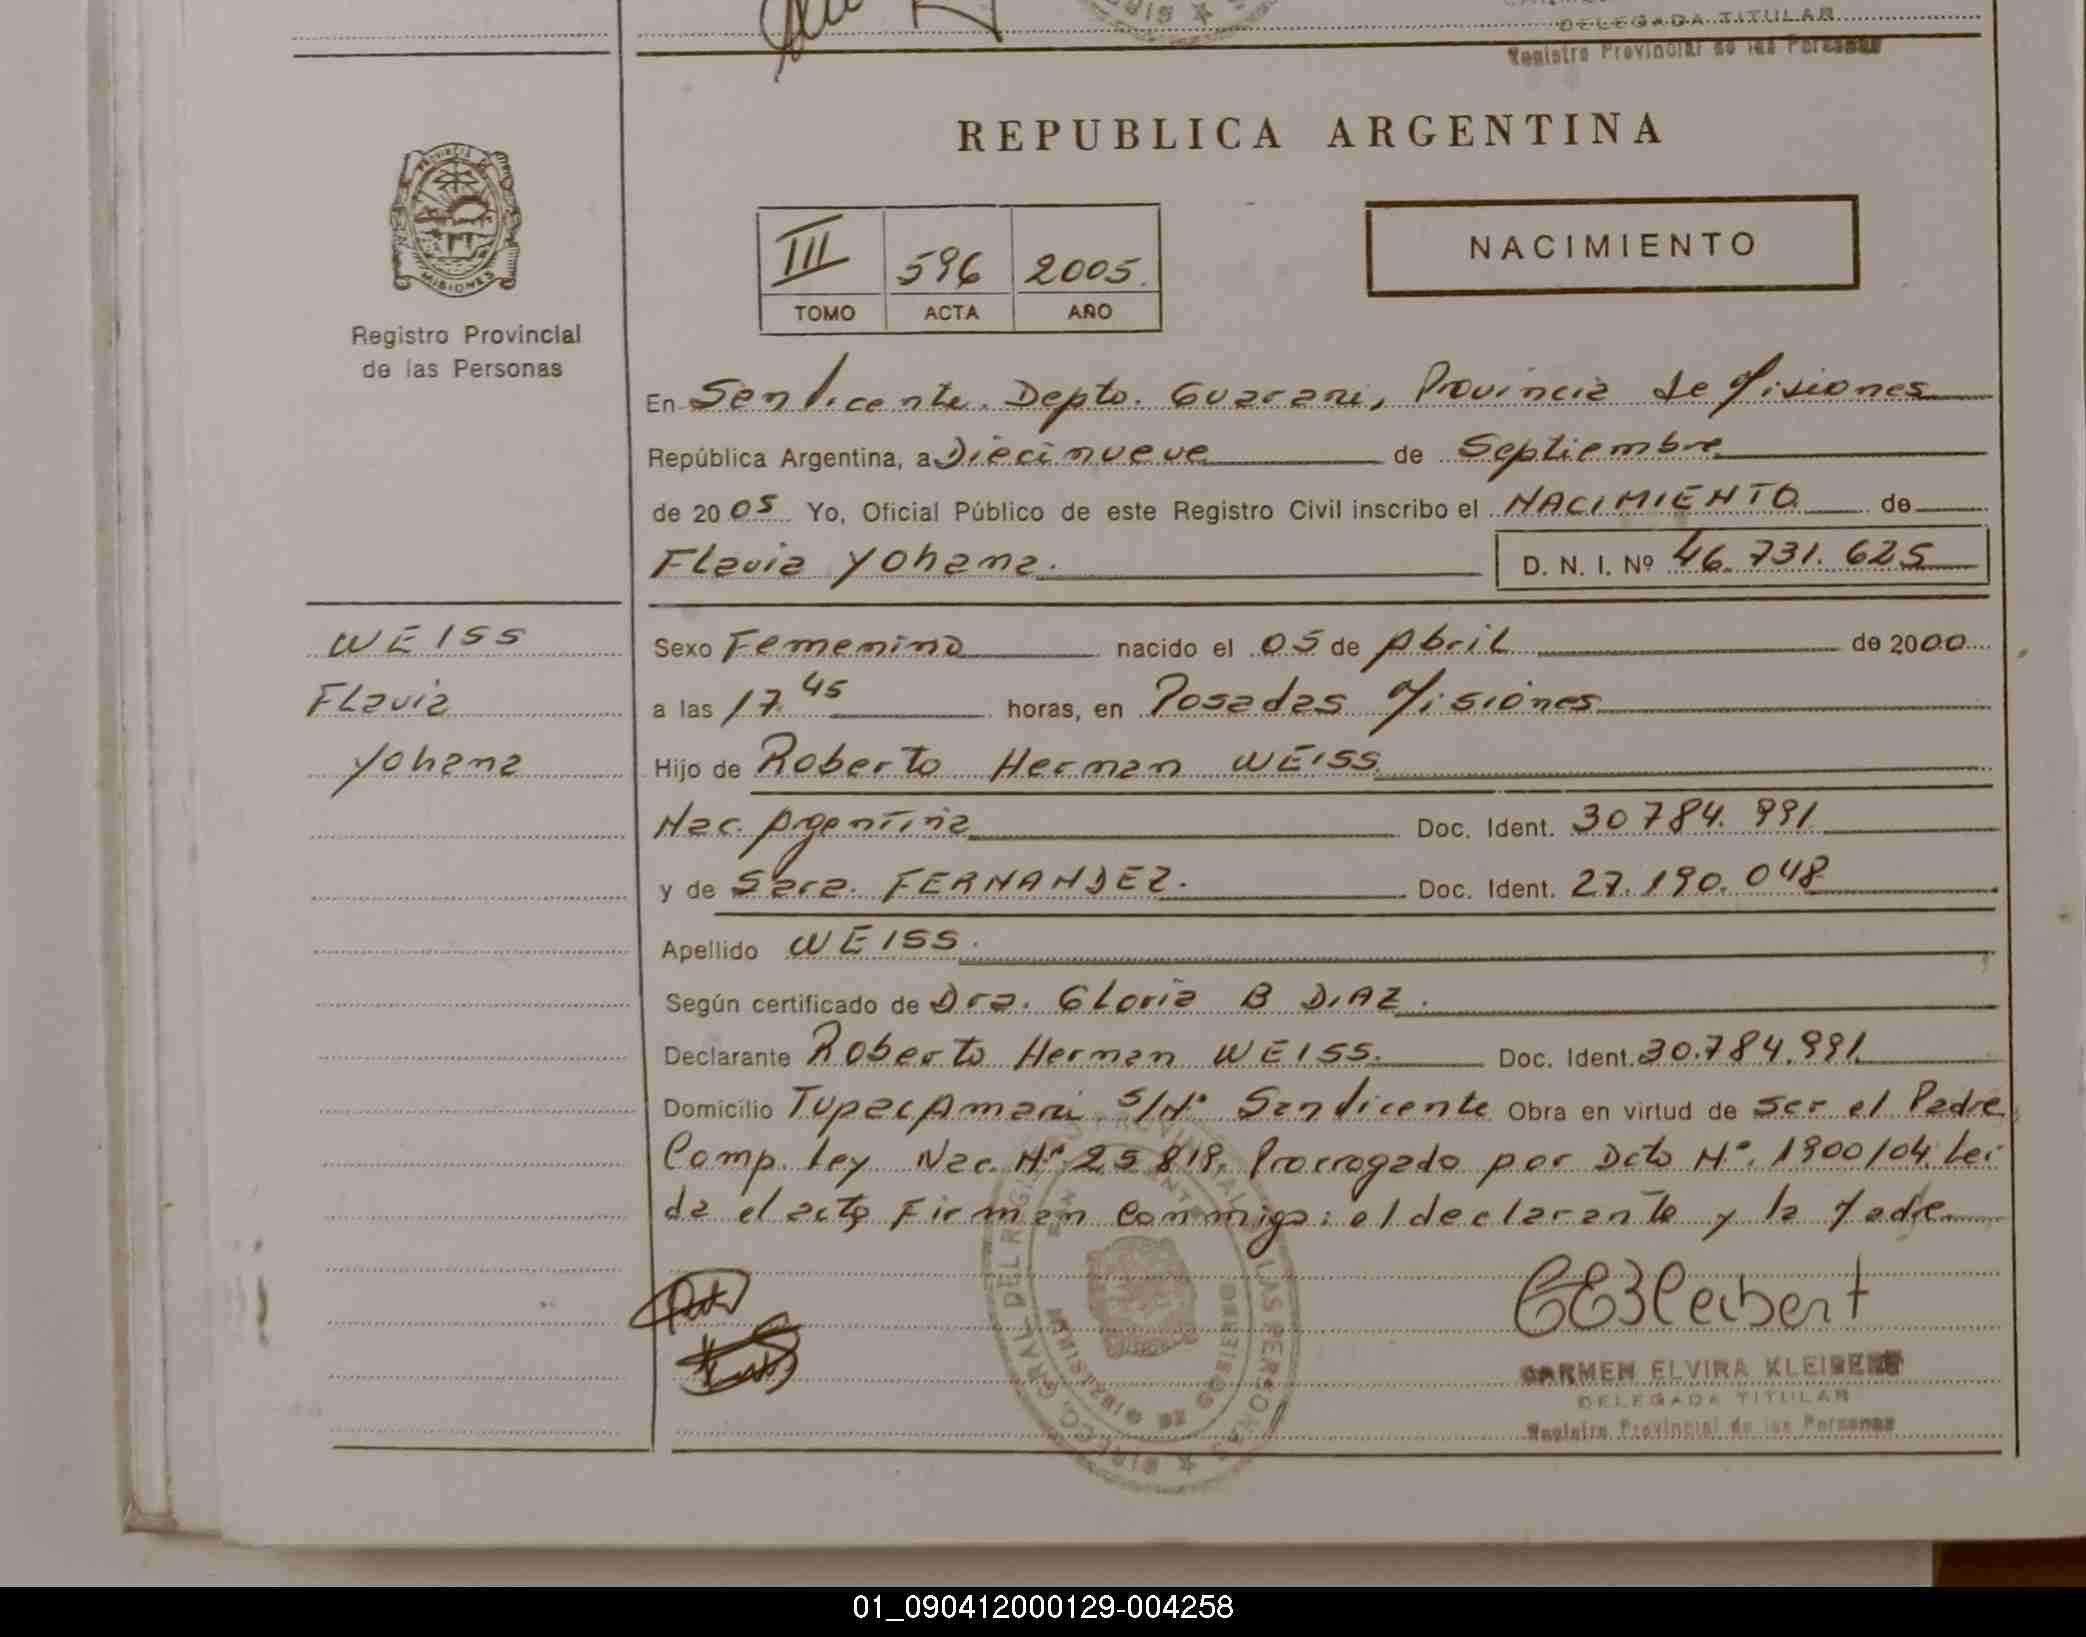 DELEGADA TITULAR
Registro Provincial de las Personas
REPUBLICA ARGENTINA
PROVINCIA DE
MISIONES
Registro Provincial
de las Personas
III 596 2005.
TOMO ACTA AÑO
NACIMIENTO
En San Vicente. Depto. Guarani, Provincia de Misiones
República Argentina, a Diecinueve de Septiembre
de 2005 Yo, Oficial Público de este Registro Civil inscribo el NACIMIENTO de
Flavia Yohana. D. N. I. Nº 46.731.625
WEISS
Flavia
Yohana
Sexo Femenino nacido el 05 de Abril de 2000
a las 17 45 horas, en Posadas Misiones
Hijo de Roberto Herman WEISS
Nac. Argentina Doc. Ident. 30784.991
y de Sara. FERNANDEZ. Doc. Ident. 27.190.048
Apellido WEISS.
Según certificado de Dra. Gloria B DIAZ.
Declarante Roberto Herman WEISS. Doc. Ident. 30.784.991
Domicilio Tupac Amari S/Nº San Vicente Obra en virtud de ser el Padre
Comp. Ley Nac. Nº 25819. Prorrogado por Dcto Nº. 1900/04. Lei
da el acta Firman Conmigo: el declarante y la Madre
CEKleibert
CARMEN ELVIRA KLEIBERT
DELEGADA TITULAR
Registro Provincial de las Personas
01_090412000129-004258